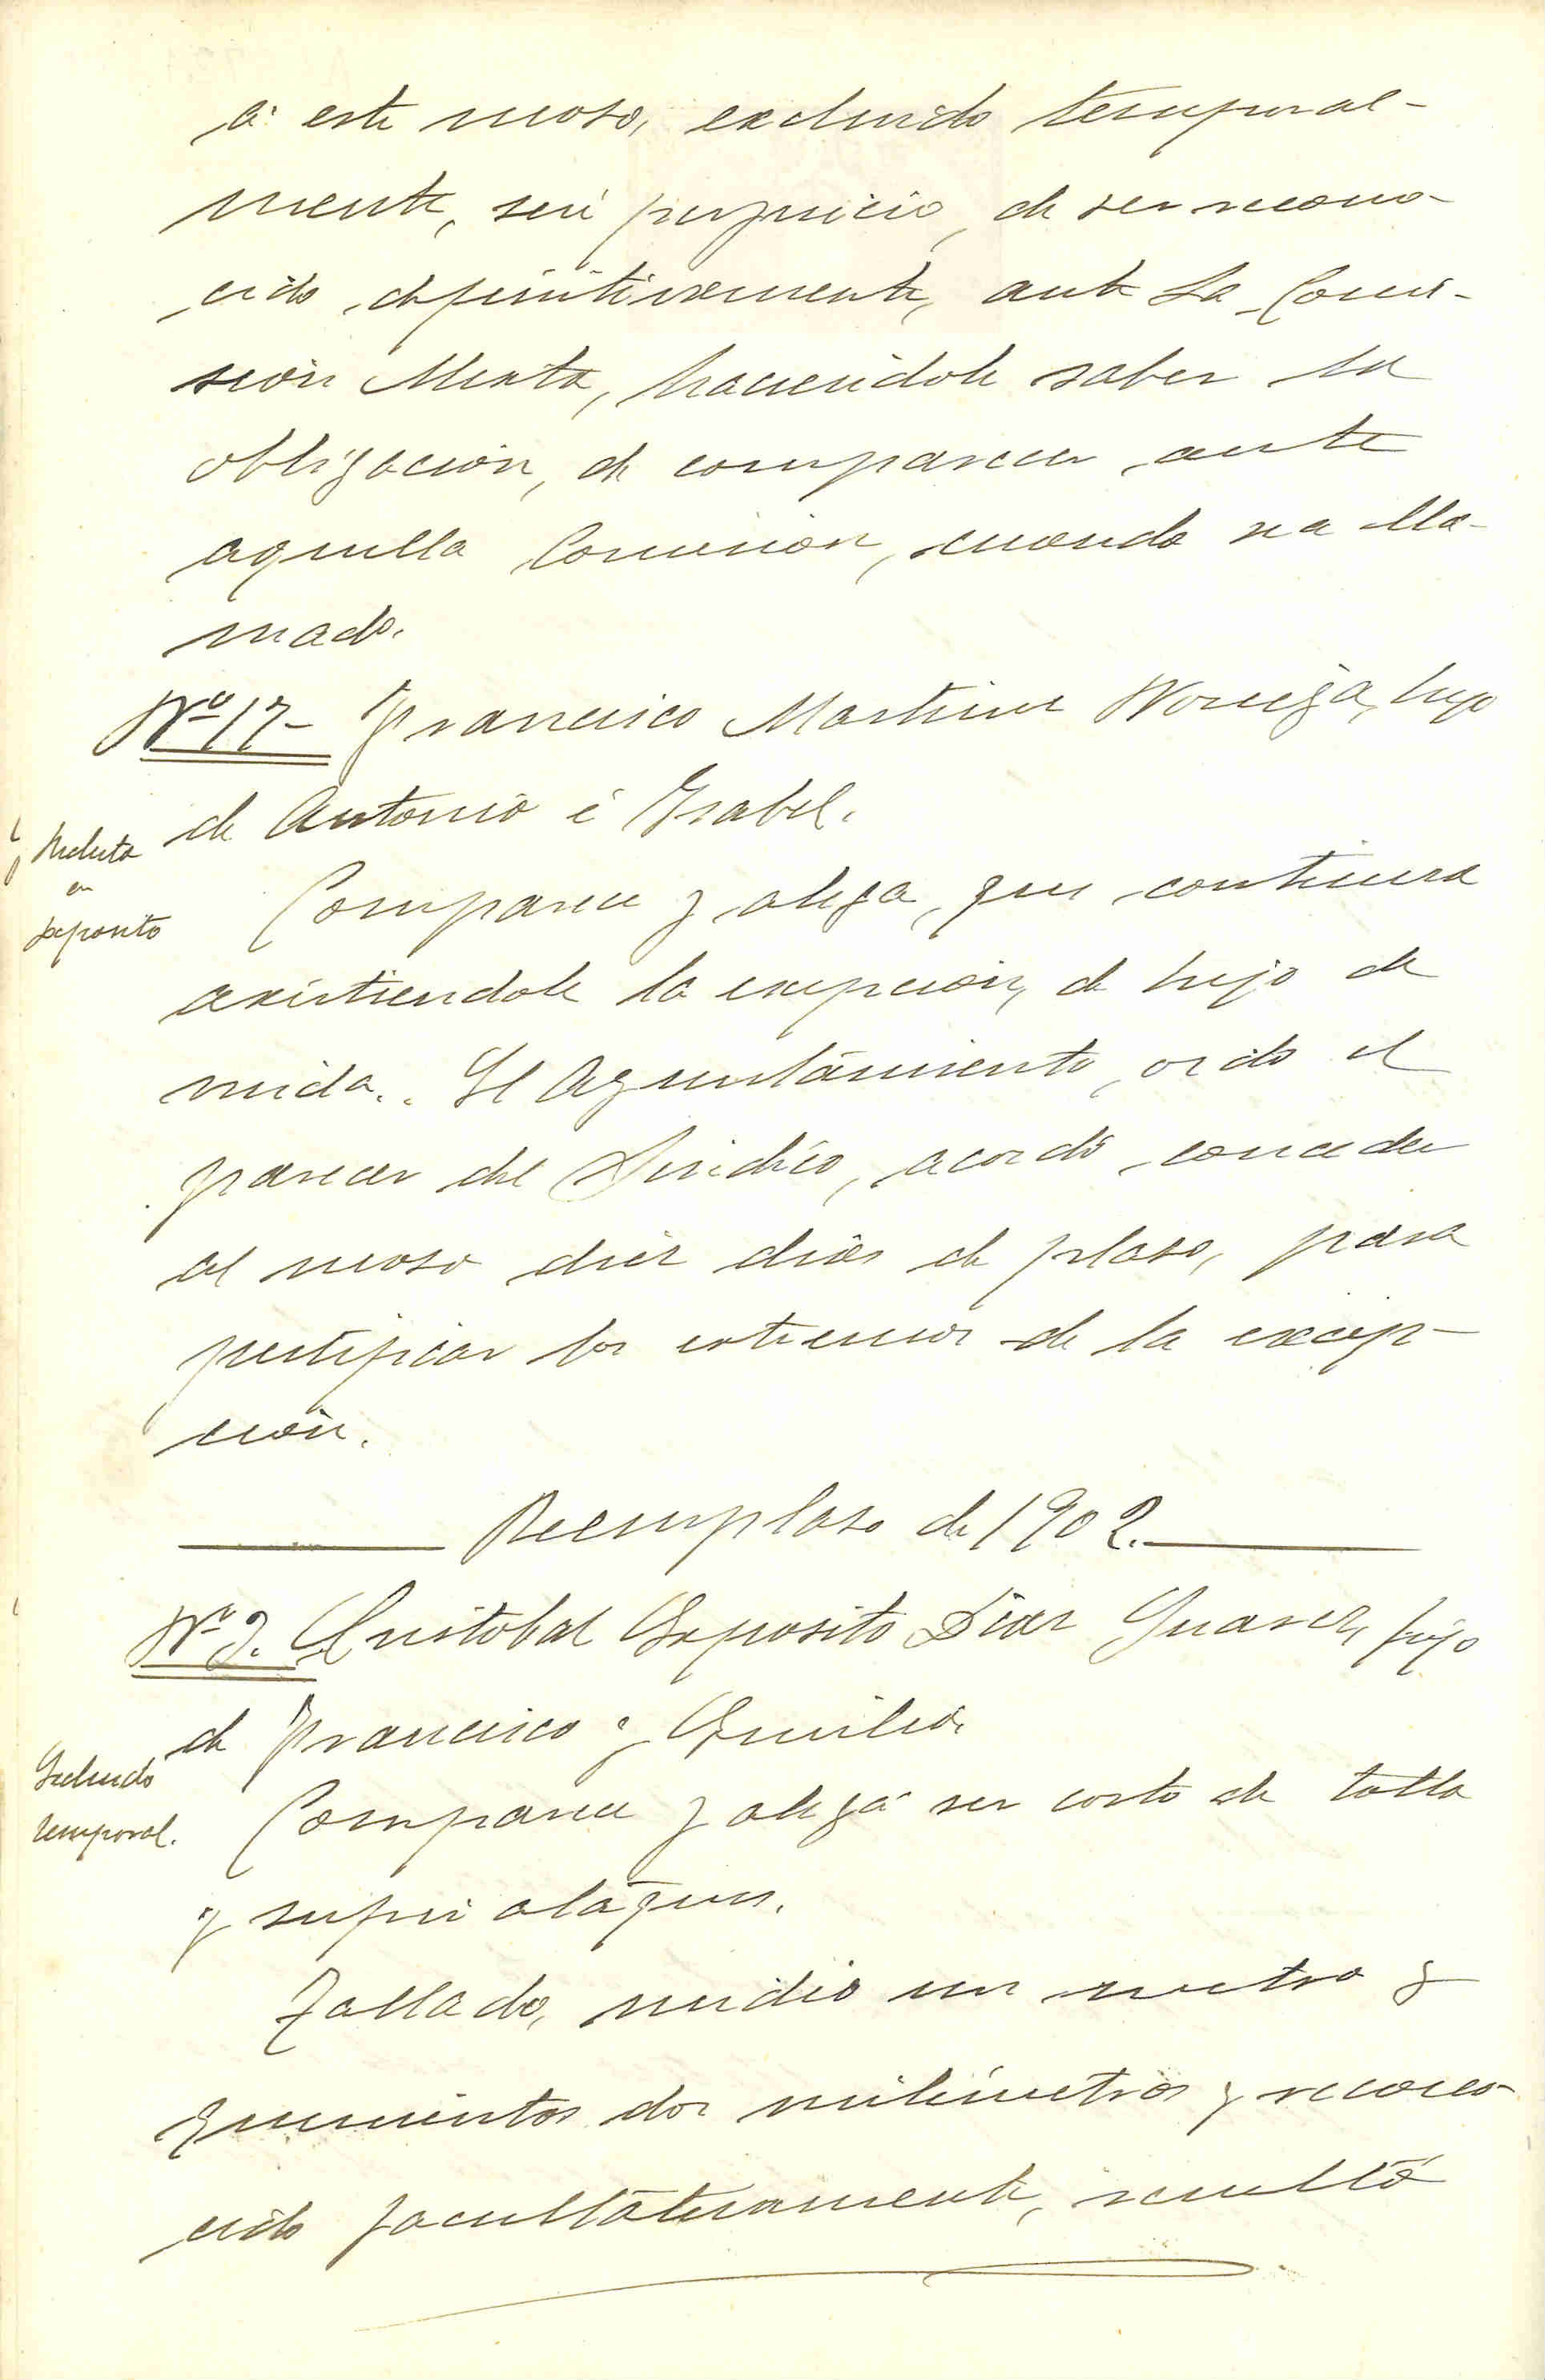 á este moso, excluido temporal-
mente, sin perjuicio, de ser recono-
cido definitivamente, ante La Comi-
sión Mixta, haciendole saber la
obligación, de comparecer ante
aquella Comision, cuando sea lla-
mado.
Nº 17- Francisco Martinez Noriega, hijo
de Antonio é Ysabel.
Recluta
en
deposito
Comparece y alega, que continua
asistiendole la excepción, de hijo de
viuda.. El Ayuntamiento, oido el
parecer del Sindico, acordó conceder
al moso diez dias de plaso, para
justificar los extremos de la excep-
ción.
Reemplaso de 1902.
Nº 2. Cristobal Exposito Diaz Guarez, hijo
de Francisco y Emilia.
Excluido
temporal.
Comparece y alega ser corto de talla
y sufrir ataques.
Tallado, midio un metro y
quinientos dos milimetros y recono-
cido facultativamente, resultó